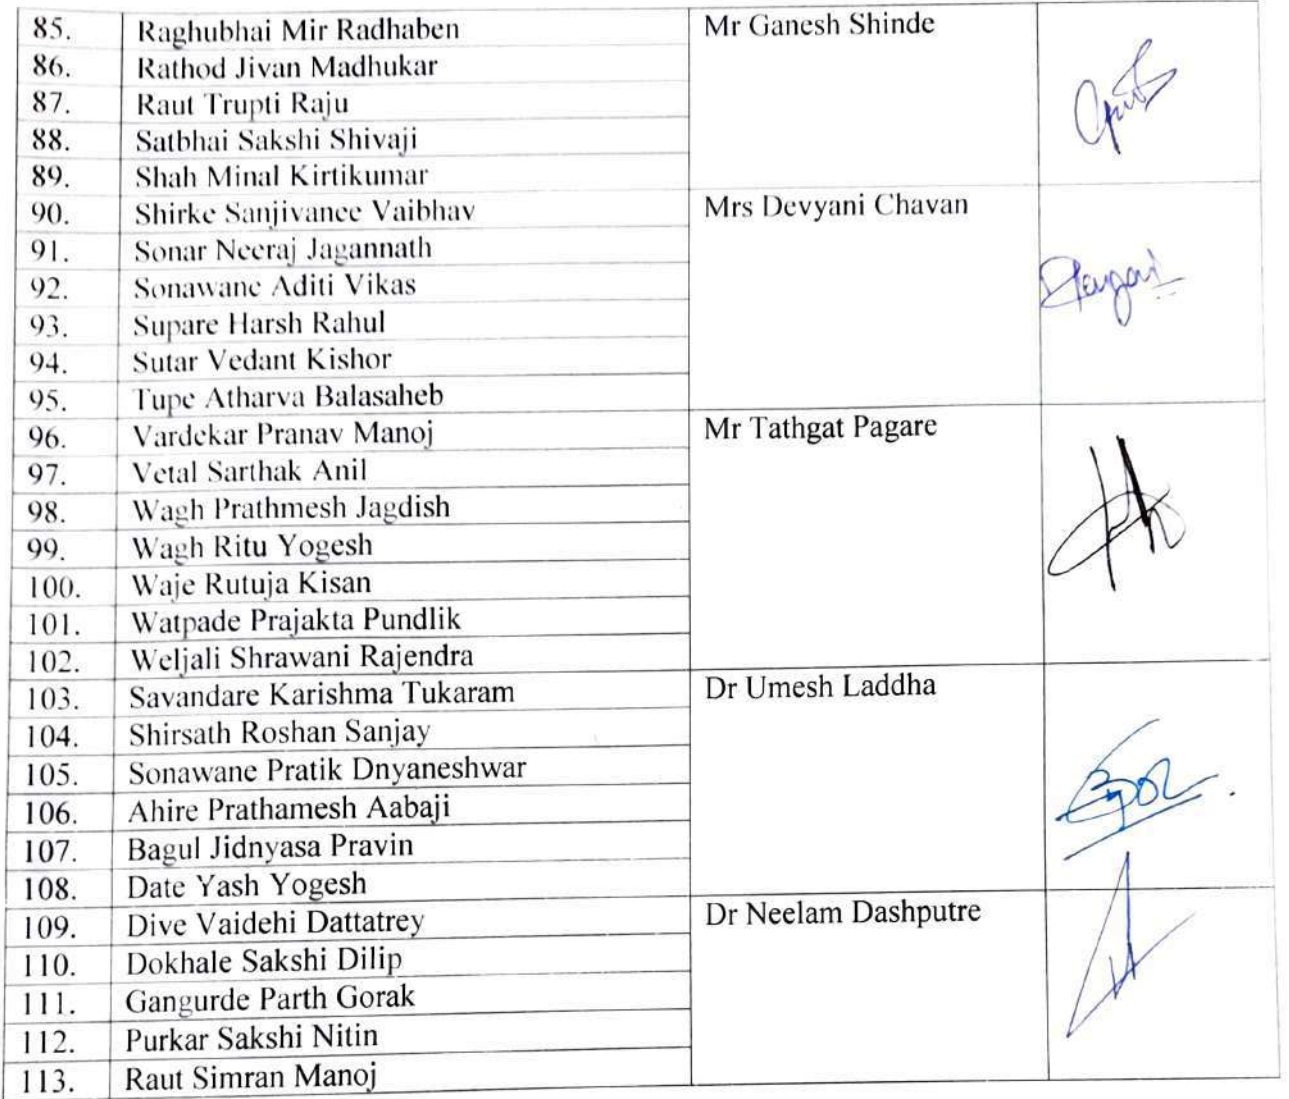 85. Raghubhai Mir Radhaben Mr Ganesh Shinde
86. Rathod Jivan Madhukar
87. Raut Trupti Raju
88. Satbhai Sakshi Shivaji
89. Shah Minal Kirtikumar
90. Shirke Sanjivanee Vaibhav Mrs Devyani Chavan
91. Sonar Neeraj Jagannath
92. Sonawane Aditi Vikas
93. Supare Harsh Rahul
94. Sutar Vedant Kishor
95. Tupe Atharva Balasaheb
96. Vardekar Pranav Manoj Mr Tathgat Pagare
97. Vetal Sarthak Anil
98. Wagh Prathmesh Jagdish
99. Wagh Ritu Yogesh
100. Waje Rutuja Kisan
101. Watpade Prajakta Pundlik
102. Weljali Shrawani Rajendra
103. Savandare Karishma Tukaram Dr Umesh Laddha
104. Shirsath Roshan Sanjay
105. Sonawane Pratik Dnyaneshwar
106. Ahire Prathamesh Aabaji
107. Bagul Jidnyasa Pravin
108. Date Yash Yogesh
109. Dive Vaidehi Dattatrey Dr Neelam Dashputre
110. Dokhale Sakshi Dilip
111. Gangurde Parth Gorak
112. Purkar Sakshi Nitin
113. Raut Simran Manoj